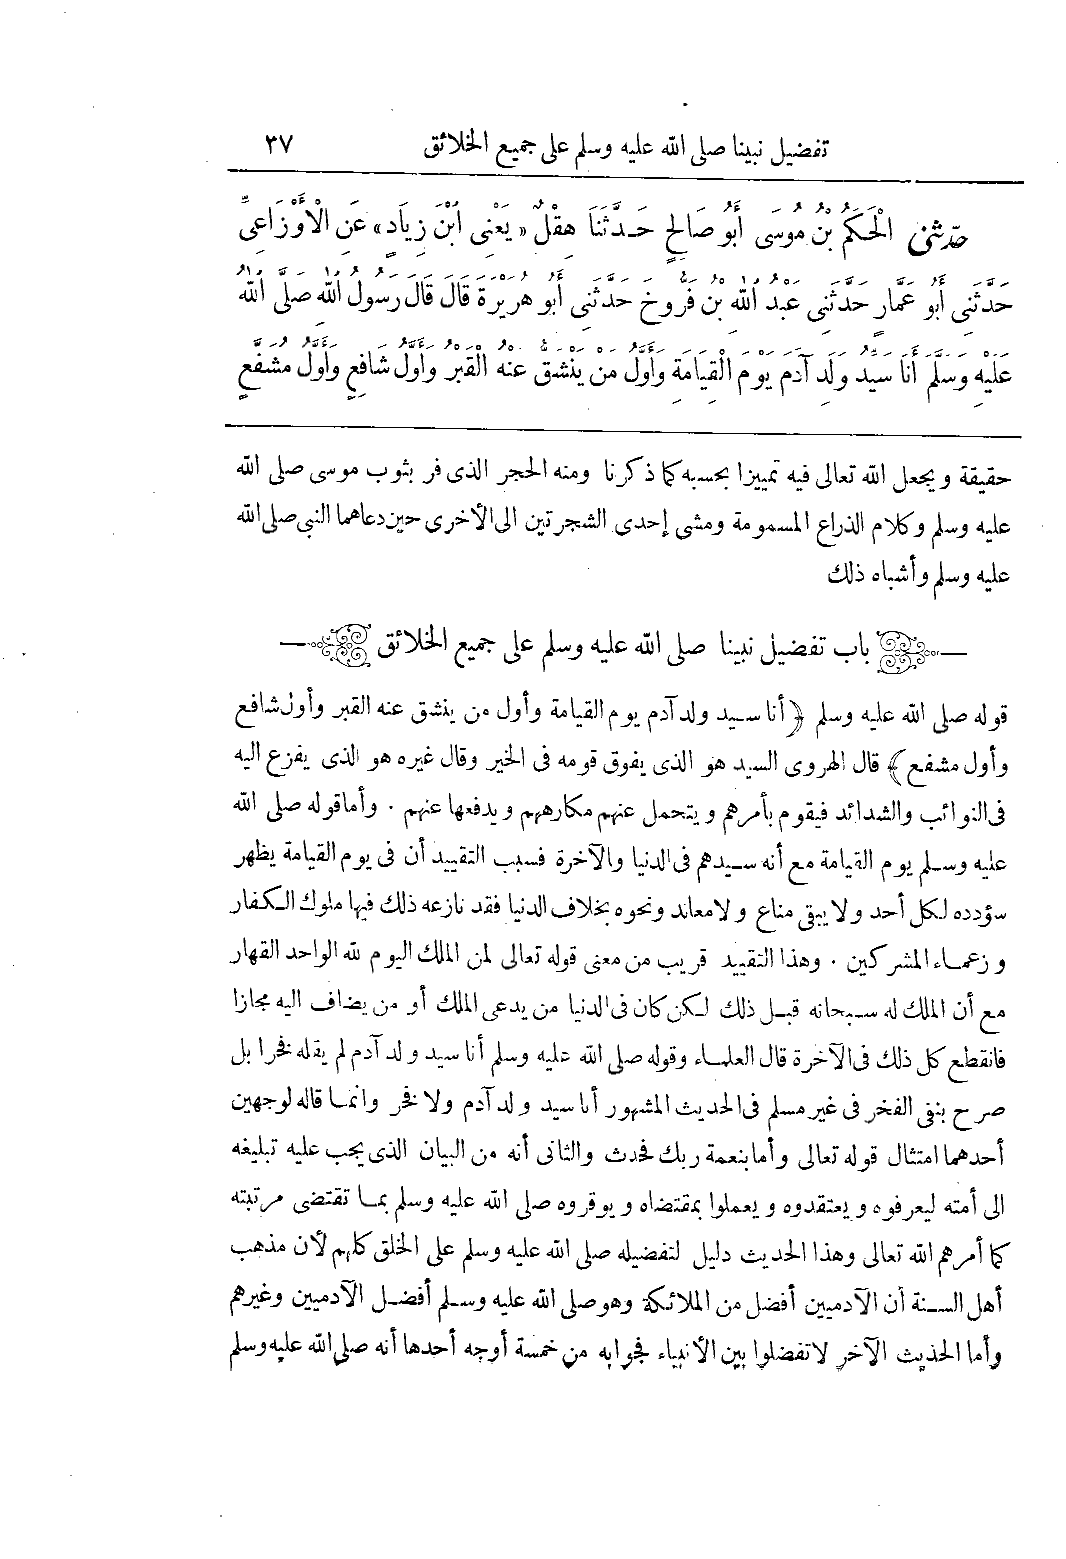 تفضيل نبينا صلى الله عليه وسلم على جميع الخلائق ٣٧
حَدَّثَنِى الْحَكَمُ بْنُ مُوسَى أَبُو صَالِحٍ حَدَّثَنَا هِقْلٌ «يَعْنِى ابْنَ زِيَادٍ» عَنِ الْأَوْزَاعِىِّ
حَدَّثَنِى أَبُو عَمَّارٍ حَدَّثَنِى عَبْدُ اللهِ بْنُ فَرُّوخَ حَدَّثَنِى أَبُو هُرَيْرَةَ قَالَ قَالَ رَسُولُ اللهِ صَلَّى اللهُ
عَلَيْهِ وَسَلَّمَ أَنَا سَيِّدُ وَلَدِ آدَمَ يَوْمَ الْقِيَامَةِ وَأَوَّلُ مَنْ يَنْشَقُّ عَنْهُ الْقَبْرُ وَأَوَّلُ شَافِعٍ وَأَوَّلُ مُشَفَّعٍ
حقيقة ويجعل الله تعالى فيه تمييزا بحسبه كما ذكرنا ومنه الحجر الذى فر بثوب موسى صلى الله
عليه وسلم وكلام الذراع المسمومة ومشى إحدى الشجرتين الى الأخرى حين دعاهما النبى صلى الله
عليه وسلم وأشباه ذلك
باب تفضيل نبينا صلى الله عليه وسلم على جميع الخلائق
قوله صلى الله عليه وسلم ﴿أنا سيد ولد آدم يوم القيامة وأول من ينشق عنه القبر وأول شافع
وأول مشفع﴾ قال الهروى السيد هو الذى يفوق قومه فى الخير وقال غيره هو الذى يفزع اليه
فى النوائب والشدائد فيقوم بأمرهم ويتحمل عنهم مكارههم ويدفعها عنهم . وأما قوله صلى الله
عليه وسلم يوم القيامة مع أنه سيدهم فى الدنيا والآخرة فسبب التقييد أن فى يوم القيامة يظهر
سؤدده لكل أحد ولا يبقى مناع ولا معاند ونحوه بخلاف الدنيا فقد نازعه ذلك فيها ملوك الكفار
وزعماء المشركين . وهذا التقييد قريب من معنى قوله تعالى لمن الملك اليوم لله الواحد القهار
مع أن الملك له سبحانه قبل ذلك لكن كان فى الدنيا من يدعى الملك أو من يضاف اليه مجازا
فانقطع كل ذلك فى الآخرة قال العلماء وقوله صلى الله عليه وسلم أنا سيد ولد آدم لم يقله فخرا بل
صرح بنفى الفخر فى غير مسلم فى الحديث المشهور أنا سيد ولد آدم ولا فخر وانما قاله لوجهين
أحدهما امتثال قوله تعالى وأما بنعمة ربك فحدث والثانى أنه من البيان الذى يجب عليه تبليغه
الى أمته ليعرفوه ويعتقدوه ويعملوا بمقتضاه ويوقروه صلى الله عليه وسلم بما تقتضى مرتبته
كما أمرهم الله تعالى وهذا الحديث دليل لتفضيله صلى الله عليه وسلم على الخلق كلهم لأن مذهب
أهل السنة أن الآدميين أفضل من الملائكة وهو صلى الله عليه وسلم أفضل الآدميين وغيرهم
وأما الحديث الآخر لا تفضلوا بين الأنبياء فجوابه من خمسة أوجه أحدها أنه صلى الله عليه وسلم